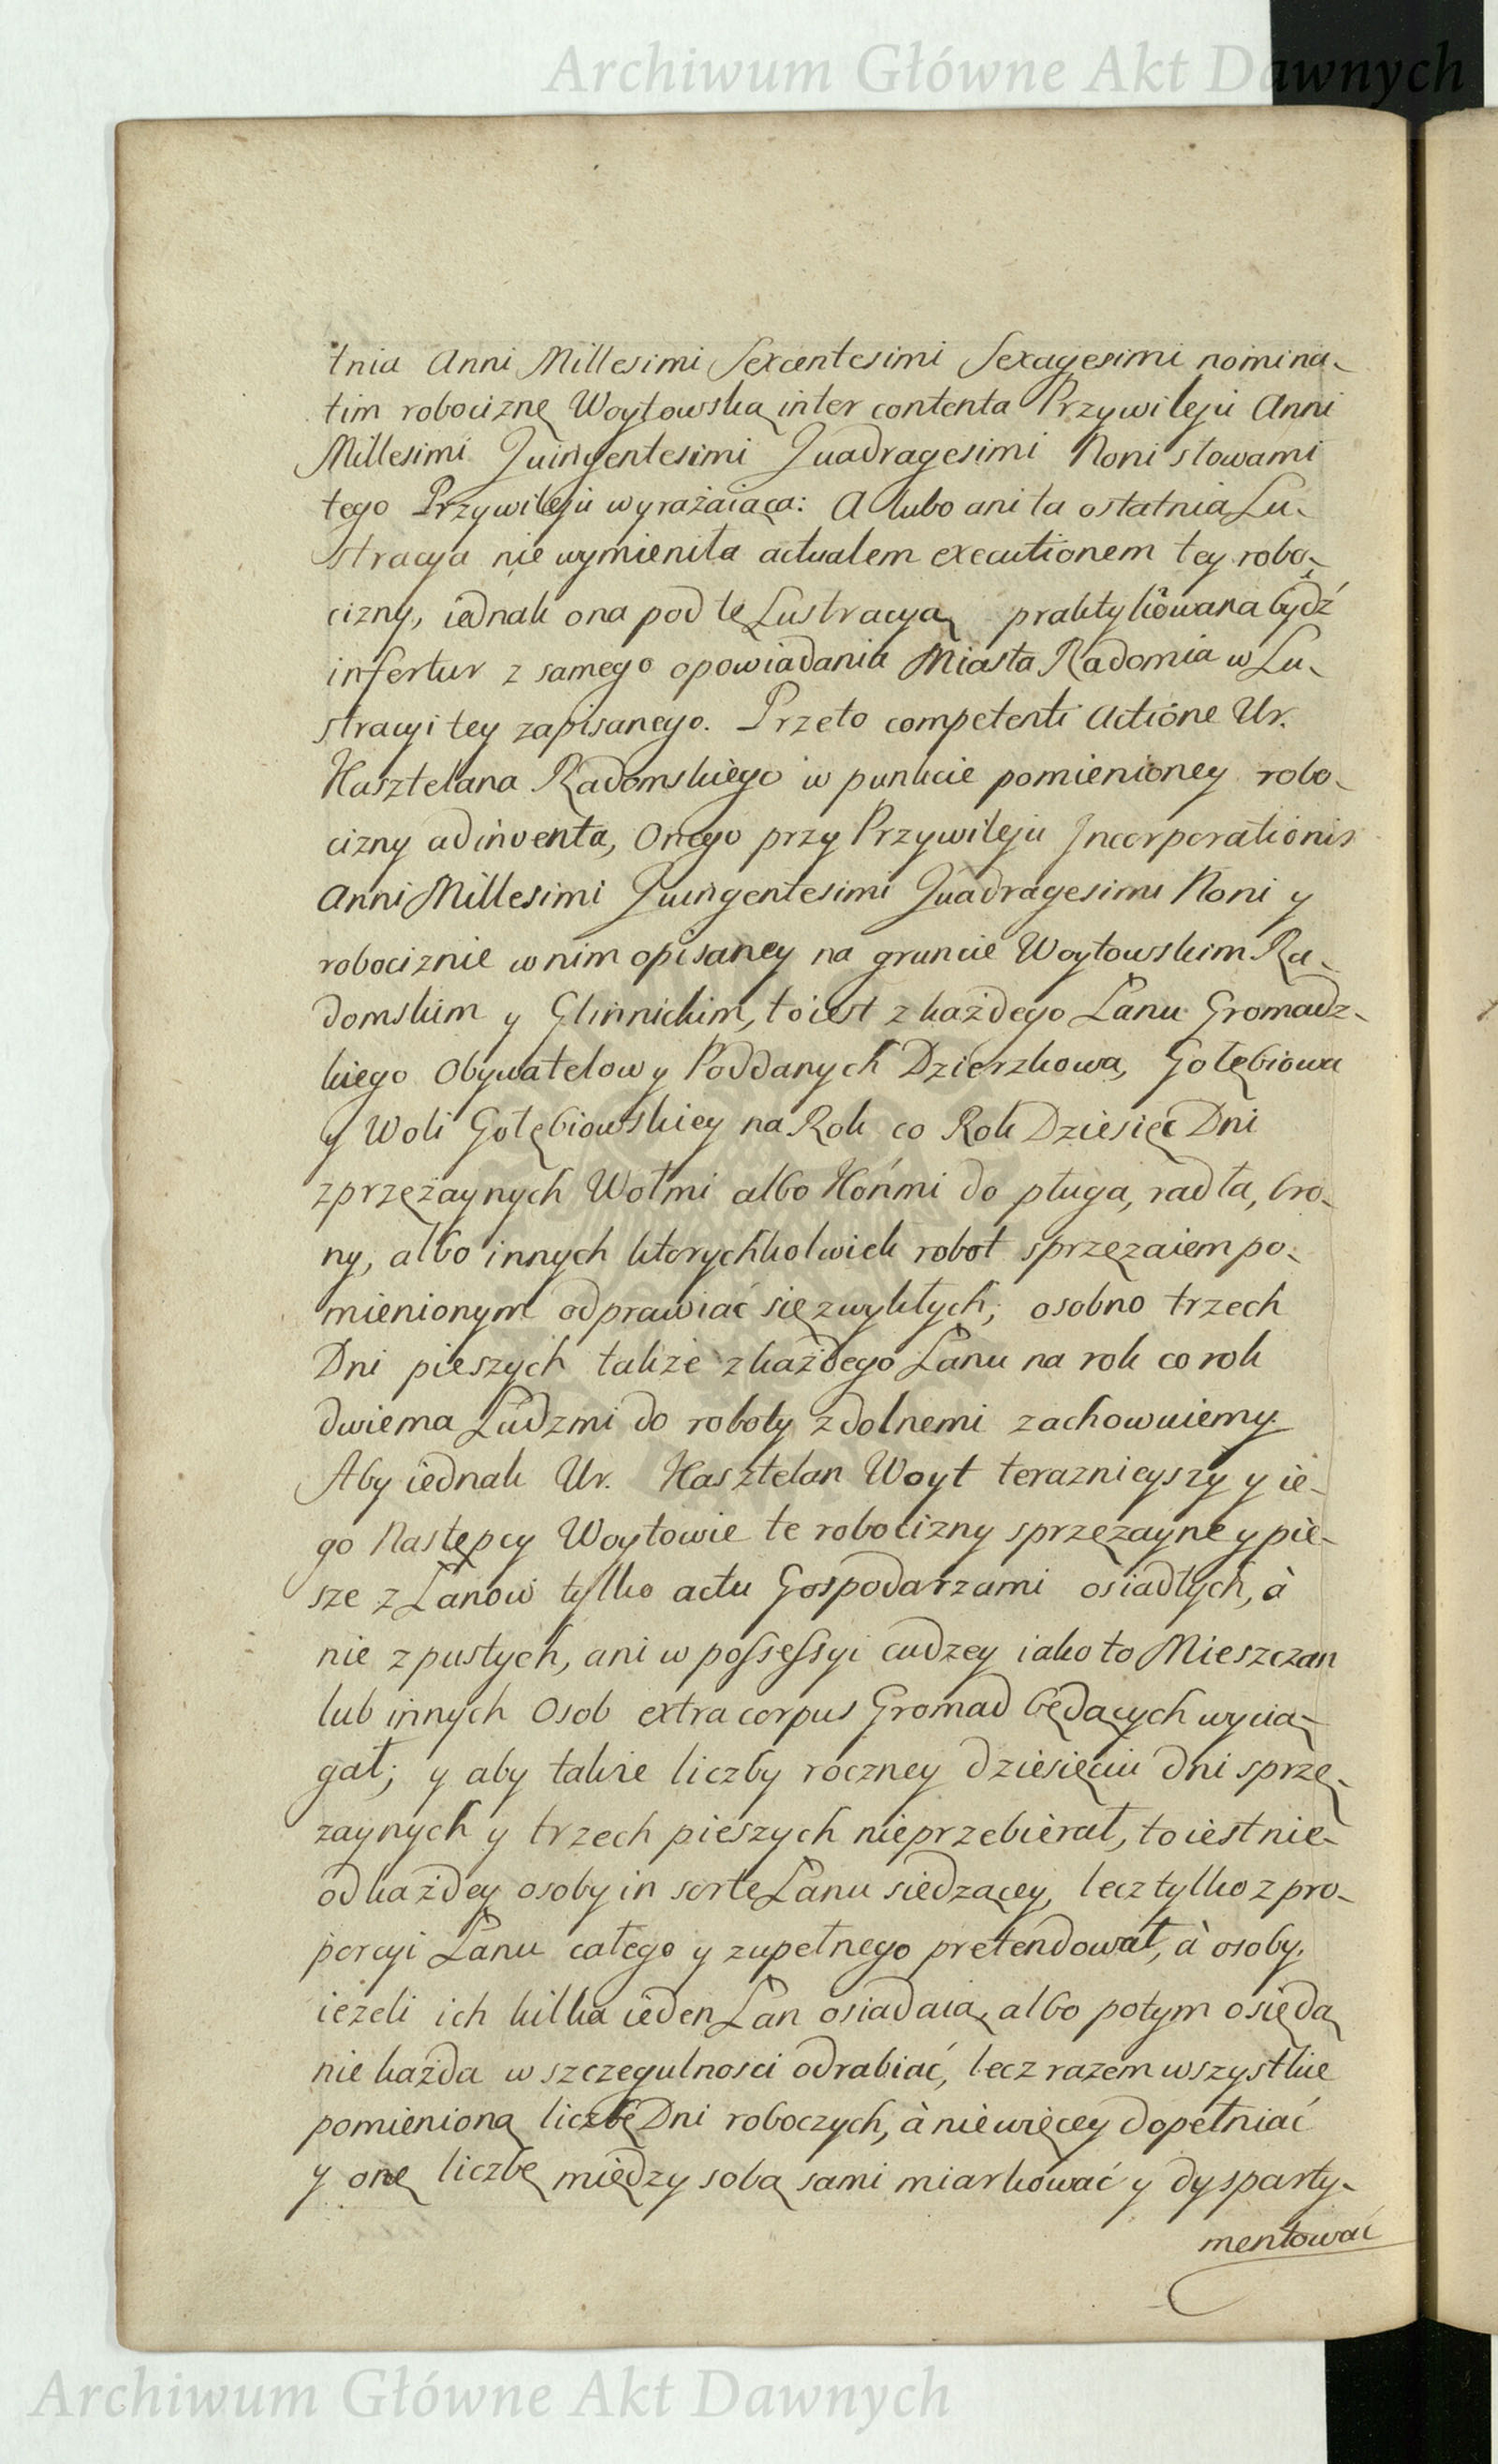 Archiwum Główne Akt Dawnych
tnia Anni Millesimi Sexcentesimi Sexagesimi nomina-
tim robociznę Woytowską inter contenta Przywileju Anni
Millesimi Quingentesimi Quadragesimi Noni słowami
tego Przywileju wyrażaiąca: A lubo ani ta ostatnia Lu-
stracya nie wymieniła actualem executionem tey robo-
cizny, iednak ona pod tę Lustracyą praktykowana bydź
infertur z samego opowiadania Miasta Radomia w Lu-
stracyi tey zapisanego. Przeto competenti Actione Ur.
Kasztelana Radomskiego w punkcie pomienioney robo-
cizny adinventa, Onego przy Przywileju Incorporationis
Anni Millesimi Quingentesimi Quadragesimi Noni y
robociznie w nim opisaney na gruncie Woytowskim Ra-
domskim y Glinnickim, to iest z każdego Łanu Gromadz-
kiego Obywatelow y Poddanych Dzierzkowa, Gołębiowa
y Woli Gołębiowskiey na Rok co Rok Dziesięć Dni
zprzężaynych Wołmi albo Końmi do pługa, radła, bro-
ny, albo innych ktorychkolwiek robot sprzężaiem po-
mienionym odprawiać się zwykłych; osobno trzech
Dni pieszych także z każdego Łanu na rok co rok
dwiema Ludzmi do roboty zdolnemi zachowuiemy.
Aby iednak Ur. Kasztelan Woyt teraznieyszy y ie-
go Następcy Woytowie te robocizny sprzężayne y pie-
sze z Łanow tylko actu Gospodarzami osiadłych, à
nie z pustych, ani w possessyi cudzey iako to Mieszczan
lub innych Osob extra corpus Gromad będących wycią-
gał; y aby także liczby roczney dziesięciu dni sprzę-
żaynych y trzech pieszych nieprzebierał, to iest nie-
od każdey osoby in sorte Łanu siedzącey, lecz tylko z pro-
porcyi Łanu całego y zupełnego pretendował, à osoby,
ieżeli ich kilka ieden Łan osiadaią, albo potym osiędą
nie każda w szczegulnosci odrabiać, lecz razem wszystkie
pomienioną liczbę Dni roboczych, à niewięcey dopełniać
y onę liczbę między sobą sami miarkować y dysparty-
mentować
Archiwum Główne Akt Dawnych